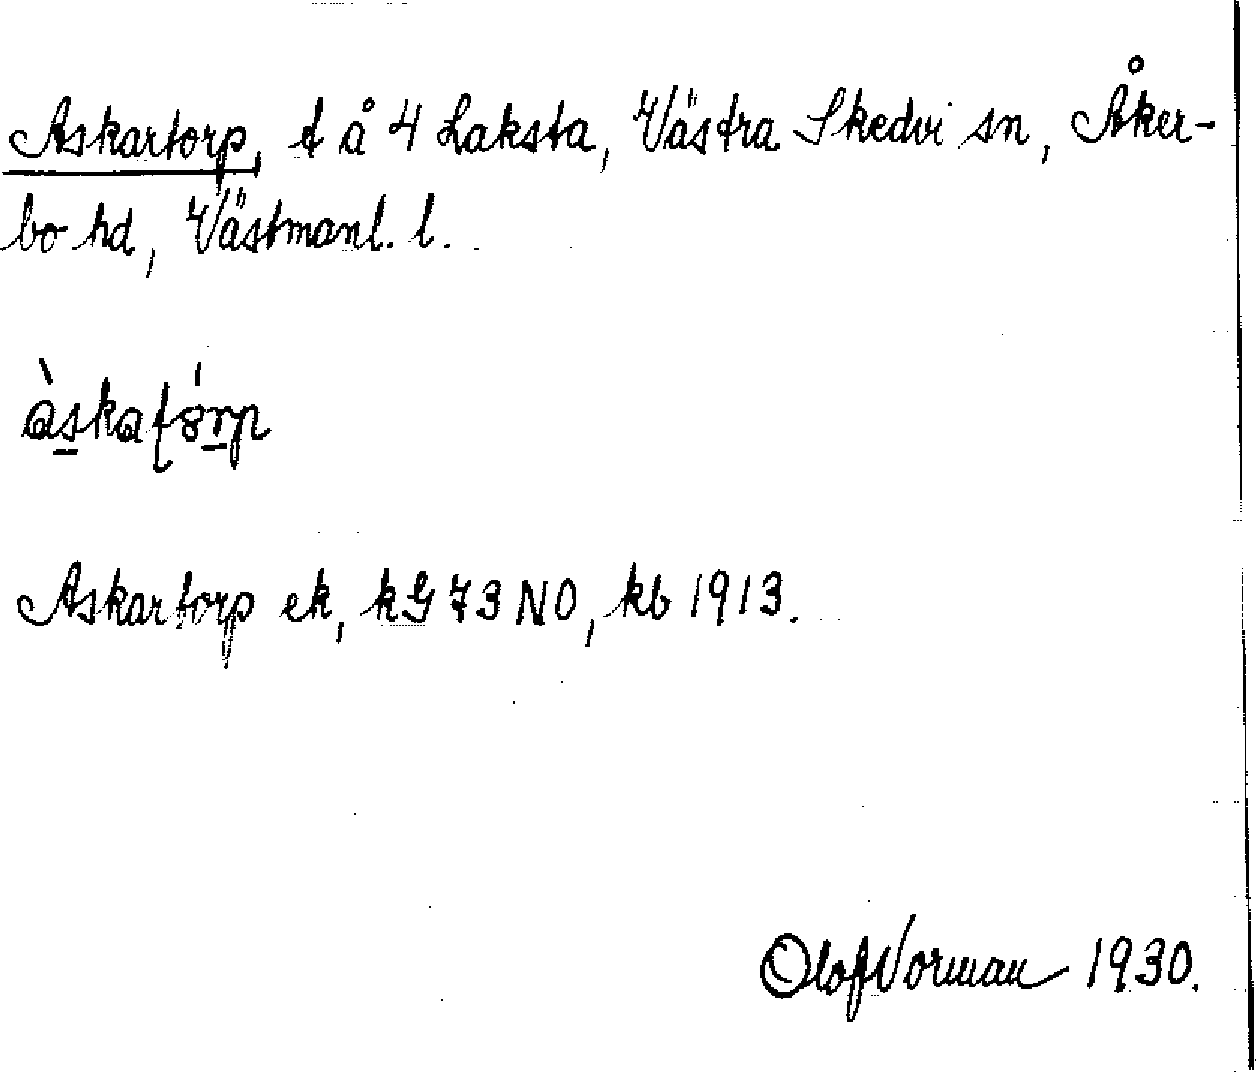 Askartorp, t å 4 Laksta, Västra Skedvi sn, Åker-
bo hd, Västmanl. l.
àskatórp
Askartorp ek, kG 73 NO, kb 1913.
Olof Vorman 1930.